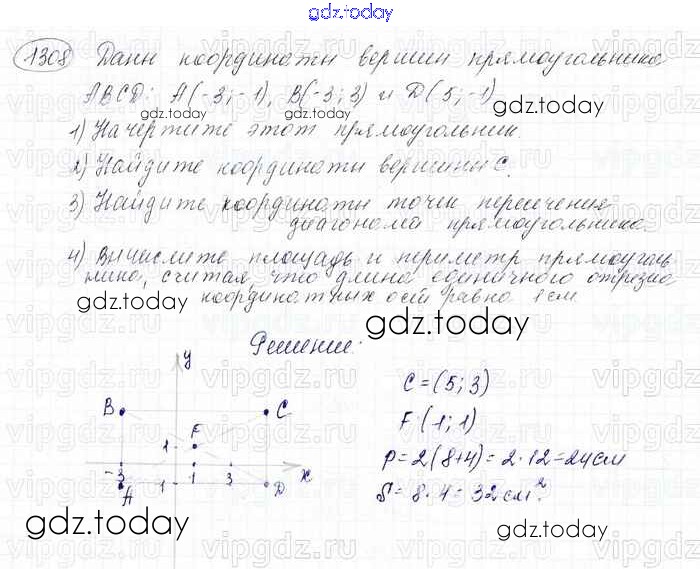 gdz.today
1308 Даны координаты вершин прямоугольника
ABCD: A(-3;-1), B(-3;3) и D(5;-1)
gdz.today gdz.today
1) Начертите этот прямоугольник.
2) Найдите координаты вершины C.
gdz.today
3) Найдите координаты точек пересечения
диагоналей прямоугольника.
4) Вычислите площадь и периметр прямоуголь-
ника, считая, что длина единичного отрезка
координатных осей равна 1 см.
gdz.today gdz.today
Решение:
y
B C
F
1
-3 1 3 x
A 1 D
C = (5; 3)
F (1; 1)
P = 2(8+4) = 2·12 = 24 см
S = 8·4 = 32 см².
gdz.today gdz.today